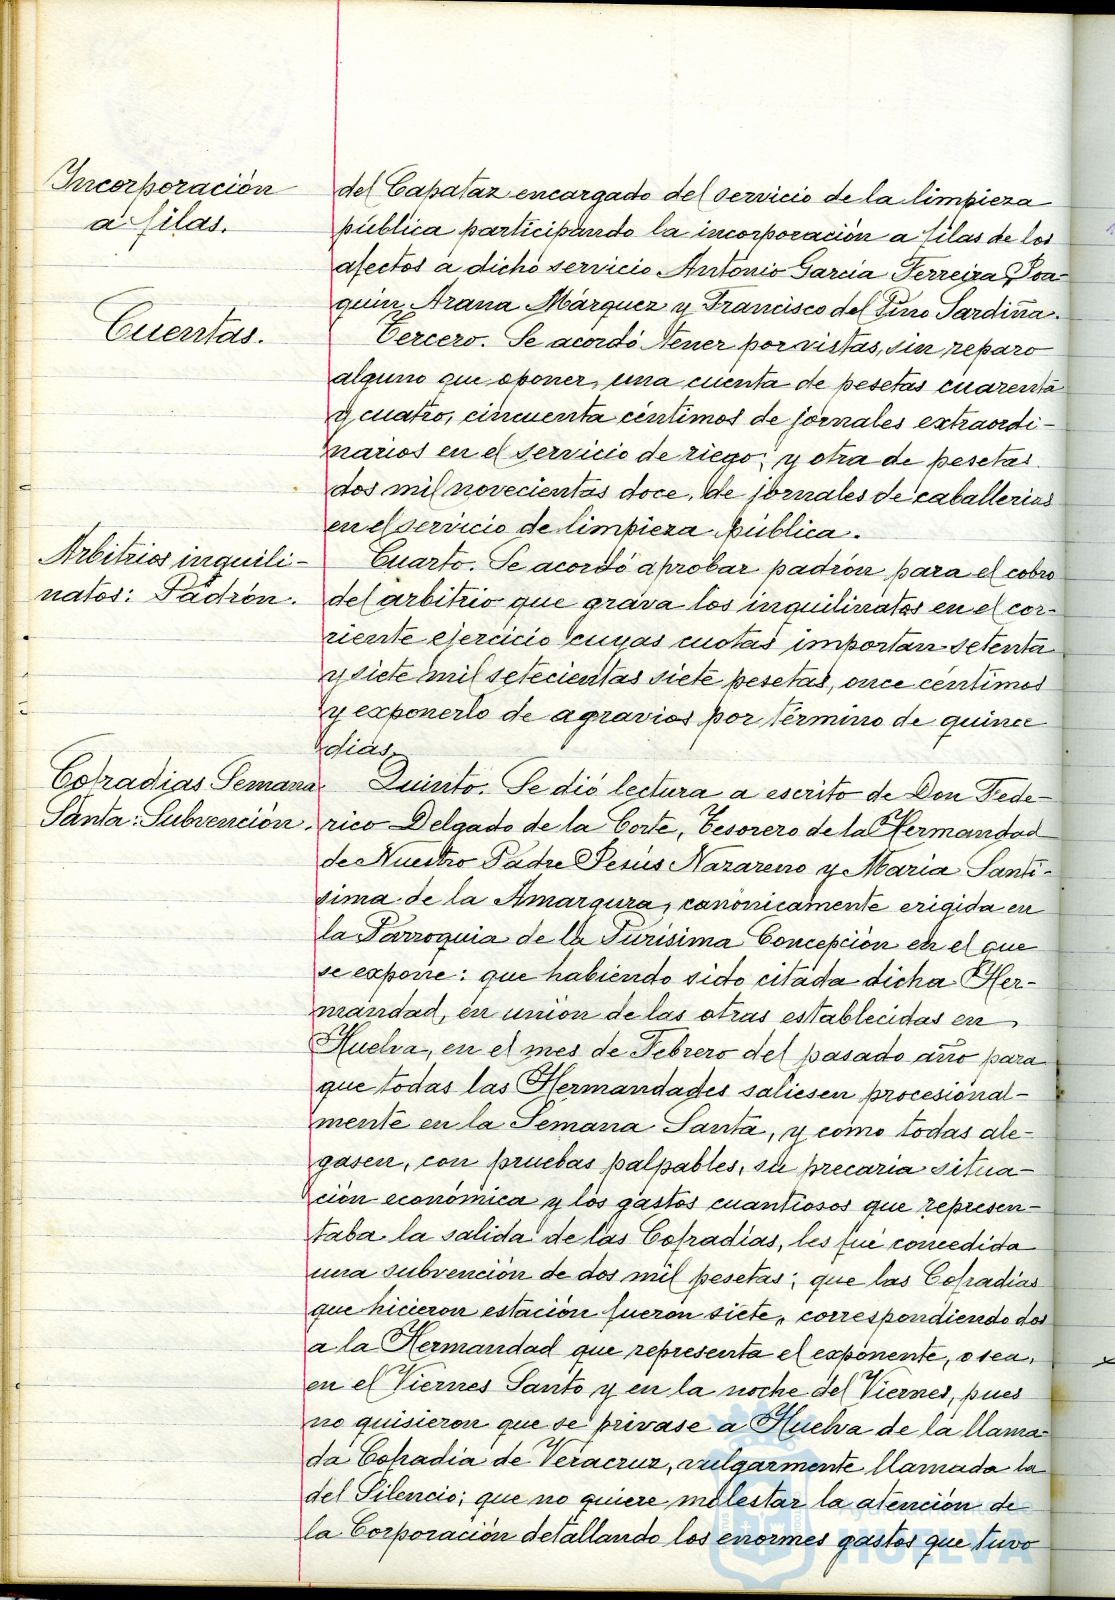 Incorporación
a filas.
del Capataz encargado del servicio de la limpieza
pública participando la incorporación a filas de los
afectos a dicho servicio Antonio García Ferreira, Joa-
quin Arana Márquez y Francisco del Pino Sardiña.
Cuentas.
Tercero. Se acordó tener por vistas, sin reparo
alguno que oponer, una cuenta de pesetas cuarenta
y cuatro, cincuenta céntimos de jornales extraordi-
narios en el servicio de riego; y otra de pesetas
dos mil novecientas doce, de jornales de caballerias
en el servicio de limpieza pública.
Arbitrios inquili-
natos: Padrón.
Cuarto. Se acordó aprobar padrón para el cobro
del arbitrio que grava los inquilinatos en el cor-
riente ejercicio cuyas cuotas importan setenta
y siete mil setecientas siete pesetas, once céntimos
y exponerlo de agravios por término de quince
dias.
Cofradias Semana
Santa: Subvención.
Quinto. Se dió lectura a escrito de Don Fede-
rico Delgado de la Corte, Tesorero de la Hermandad
de Nuestro Padre Jesús Nazareno y Maria Santi-
sima de la Amargura, canónicamente erigida en
la Parroquia de la Purísima Concepción en el que
se expone: que habiendo sido citada dicha Her-
mandad, en unión de las otras establecidas en
Huelva, en el mes de Febrero del pasado año para
que todas las Hermandades saliesen procesional-
mente en la Semana Santa, y como todas ale-
gasen, con pruebas palpables, su precaria situa-
ción económica y los gastos cuantiosos que represen-
taba la salida de las Cofradías, les fué concedida
una subvención de dos mil pesetas; que las Cofradias
que hicieron estación fueron siete, correspondiendo dos
a la Hermandad que representa el exponente, o sea,
en el Viernes Santo y en la noche del Viernes, pues
no quisieron que se privase a Huelva de la llama-
da Cofradia de Veracruz, vulgarmente llamada la
del Silencio; que no quiere molestar la atención de
la Corporación detallando los enormes gastos que tuvo
Ayuntamiento de
HUELVA